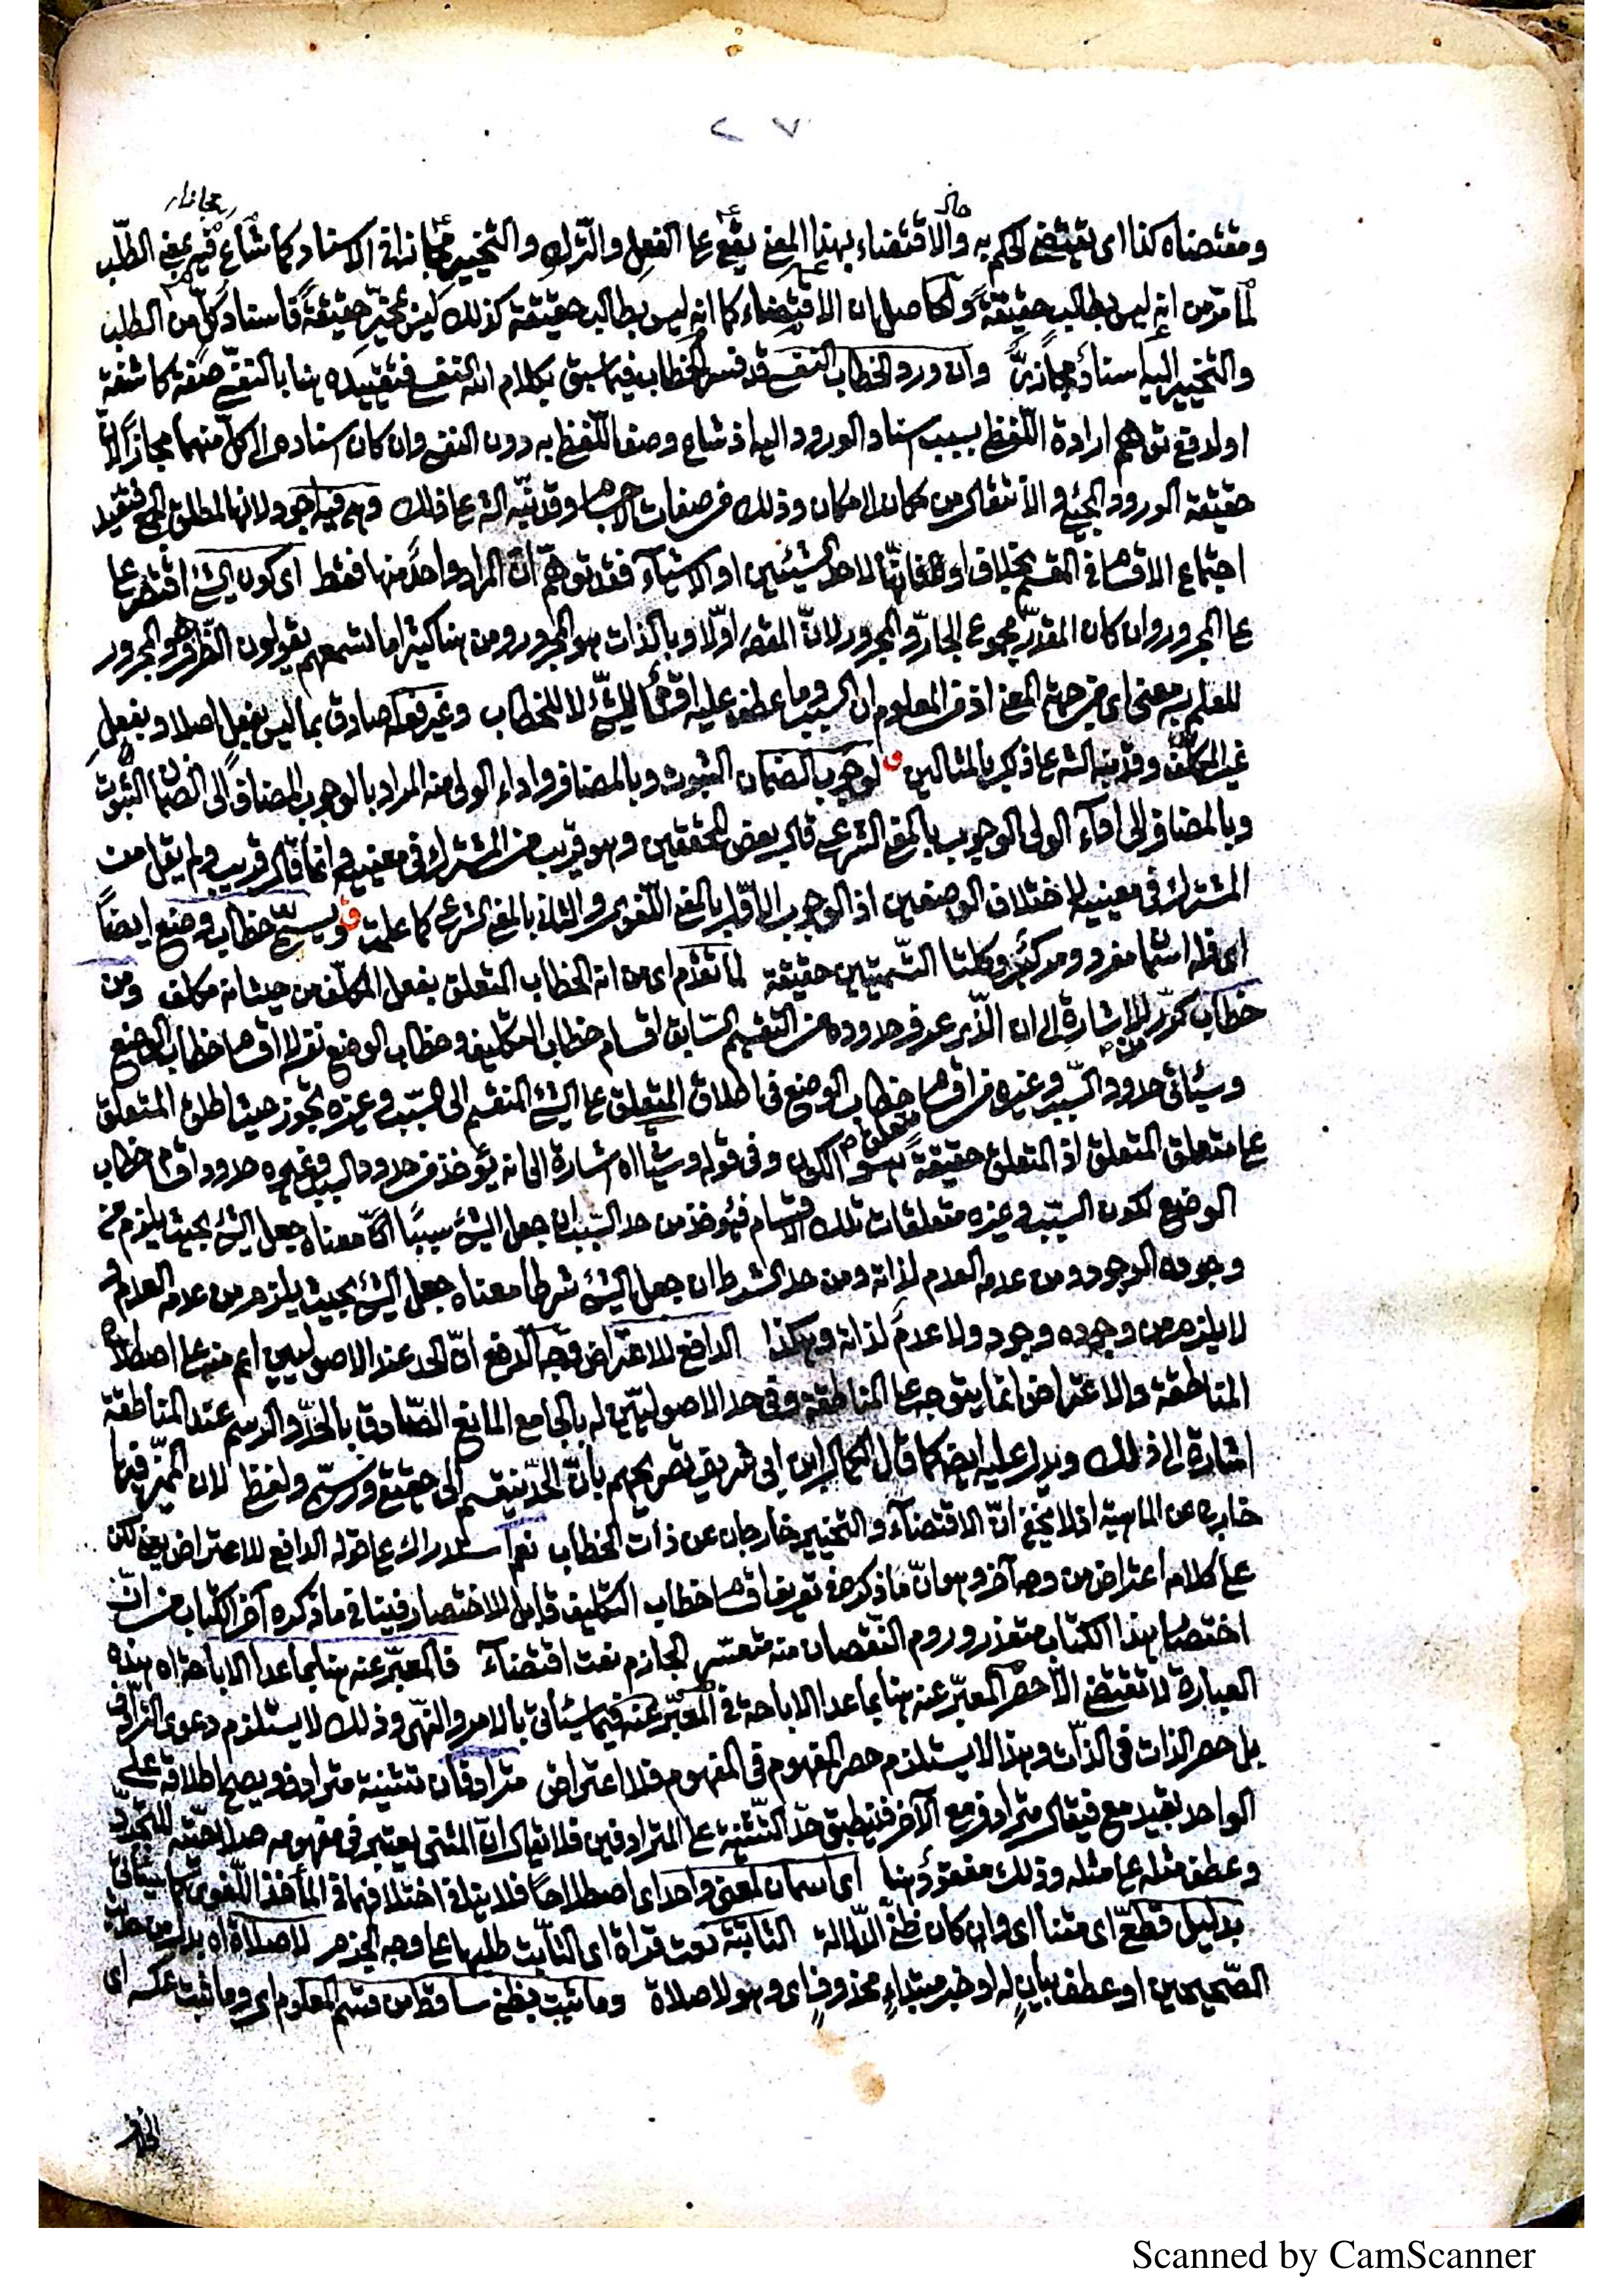 ٢٧
ومقتضاه كذا اى يقتضى الحكم به والاقتضاء بهذا المعنى يقع على الفعل والترك والتخيير مجازا فى الاسناد كما شاع فيه بمعنى الطلب
لما مر من انه ليس بطالب حقيقة والحاصل ان الاقتضاء كما انه ليس بطالب حقيقة كذلك ليس بمخير حقيقة فاسناد كل من الطلب
والتخيير اليه اسناد مجازى وان ورد الخطاب النفسى قد فسر الخطاب فيما سبق بكلام الله النفسى فتقييده هنا بالنفسى صفة كاشفة
او لدفع توهم ارادة اللفظ بسبب اسناد الورود اليه اذ شاع وصف اللفظ به دون النفسى وان كان اسناده الى كل منهما مجازا لان
حقيقة الورود المجئ والانتقال من مكان لامكان وذلك من صفات الاجسام وقد نبه الشه على ذلك وهى فيه اجود لانها لمطلق الجمع فتفيد
اجتماع الاقسام فى المقسم بخلاف او فانها لاحد الشيئين او الاشياء فقد توهم ان المراد واحد منها فقط اى كون الشئ اقتصر على
على المجرور وان كان المقدر مجموع الجار والمجرور لان المقصود اولا وبالذات هو المجرور ومن هنا كثيرا ما تسمعهم يقولون الظرف هو المجرور
للعلم به معنى اى من جهة المعنى اذ من المعلوم ان السبب وما عطف عليه اقسام للشئ لا للخطاب وغير فعله صادق بما ليس بفعل اصلا وبفعل
غير المكلف وقد نبه الشه على ذكر بالمثالين ق لوجوب الضمان الثبوت وبالمضاف واداء الولى منه المراد بالوجوب المضاف الى الضمان الثبوت
وبالمضاف الى اداء الولى الوجوب بالمعنى الشرعى قال بعض المحققين وهو قريب من المشترك فى معنييه وانما قال قريب ولم يقل من
المشترك فى معنييه لاختلاف الوصفين اذ الوجوب الاول بالمعنى اللغوى والثانى بالمعنى الشرعى كما علمت ق ويسمى خطاب وضع ايضا
اى فله اسمان مفرد ومركب وكلتا التسميتين حقيقة لما تقدم اى من انه الخطاب المتعلق بفعل المكلف من حيث انه مكلف ومن
خطاب كرر للاشارة الى ان الذى عرف حدوده من التقسيم السابق اقسام خطاب التكليف وخطاب الوضع نفسه لا اقسام خطاب الوضع
وسيأتى حدود السبب وغيره من اقسام خطاب الوضع فى اطلاق المتعلق على الشئ المنقسم الى السبب وغيره تجوز حيث اطلق المتعلق
على متعلق المتعلق اذ المتعلق حقيقة هو الكون وفى قوله وسيأتى اه اشارة الى انه يؤخذ من حدود السبب وغيره حدود اقسام خطاب
الوضع لكون السبب وغيره متعلقات تلك الاقسام فيؤخذ من حد السبب ان جعل الشئ سببا معناه جعل الشئ بحيث يلزم من
وجوده الوجود ومن عدمه العدم لذاته ومن حد الشرط ان جعل الشئ شرطا معناه جعل الشئ بحيث يلزم من عدمه العدم و
لا يلزم من وجوده وجود ولا عدم لذاته وهكذا الدافع للاعتراض وجه الدفع ان الحد عند الاصوليين اعم منه على اصطلاح
المناطقة والاعتراض انما يتوجه على المناطقة وفى حد الاصوليين له بالجامع المانع الصادق بالحد والرسم عند المناطقة
اشارة الى ذلك ويدل عليه ايضا كما قال الكمال ابن ابى شريف تصريحهم بان الحد ينقسم الى حقيقى ورسمى ولفظى لان المميز فيها
خارج عن الماهية اذ لا يخفى ان الاقتضاء والتخيير خارجان عن ذات الخطاب نعم استدراك على قوله الدافع للاعتراض يعنى لكن
على كلامه اعتراض من وجه آخر وهو ان ما ذكره من تعريف اقسام خطاب التكليف قابل للاختصار فينافى ما ذكره آخر الكتاب من ان
اختصار هذا الكتاب متعذر وروم النقصان منه متعسر الجازم نعت اقتضاء فالمعبر عنه هنا بما عدا الاباحة اه هذه
العبارة لا تقتضى الا حصر المعبر عنه هنا بما عدا الاباحة فى المعبر عنه فيما سيأتى بالامر والنهى وذلك لا يستلزم دعوى الترادف
بل حصر الذات فى الذات وهذا لا يستلزم حصر المفهوم فى المفهوم فلا اعتراض مترادفان تثنية مترادف ويصح اطلاقه على
الواحد بقيد مع فيقال مترادف مع الآخر فينطبق حد التثنية على المترادفين فلا يقال ان المثنى يعتبر فى مفهومه صلاحيته للتجرد
وعطف مثله على مثله وذلك مفقود هنا اى اسمان لمعنى واحد اى اصطلاحا فلا ينافى اختلافهما فى المأخذ اللغوى كما سيأتى
بدليل قطعى اى متنا اى وان كان ظنى الدلالة الثابتة نعت قراءة اى الثابت طلبها على وجه الجزم لا صلاة اه بدل من حديث
الصحيحين او عطف بيان له او خبر مبتداء محذوف اى وهو لا صلاة وما ثبت بظنى ساقط من قسم المعلوم اى وما ثبت عكسه اى
Scanned by CamScanner